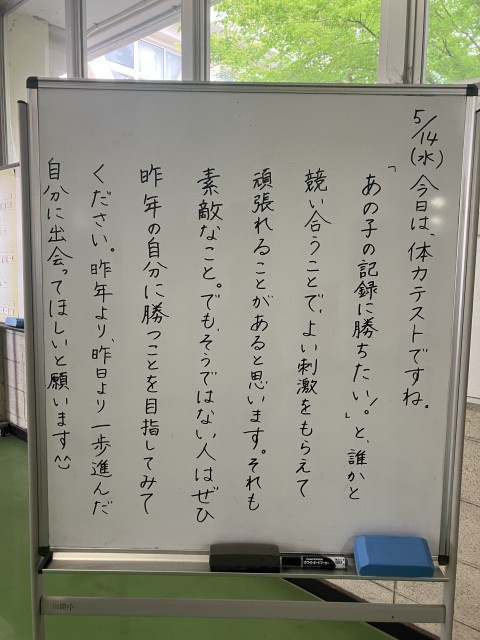 5/14(水)今日は、体力テストですね。
「あの子の記録に勝ちたい!。」と、誰かと
競い合うことで、よい刺激をもらえて
頑張れることがあると思います。それも
素敵なこと。でも、そうではない人はぜひ
昨年の自分に勝つことを目指してみて
ください。昨年より、昨日より一歩進んだ
自分に出会ってほしいと願います^^